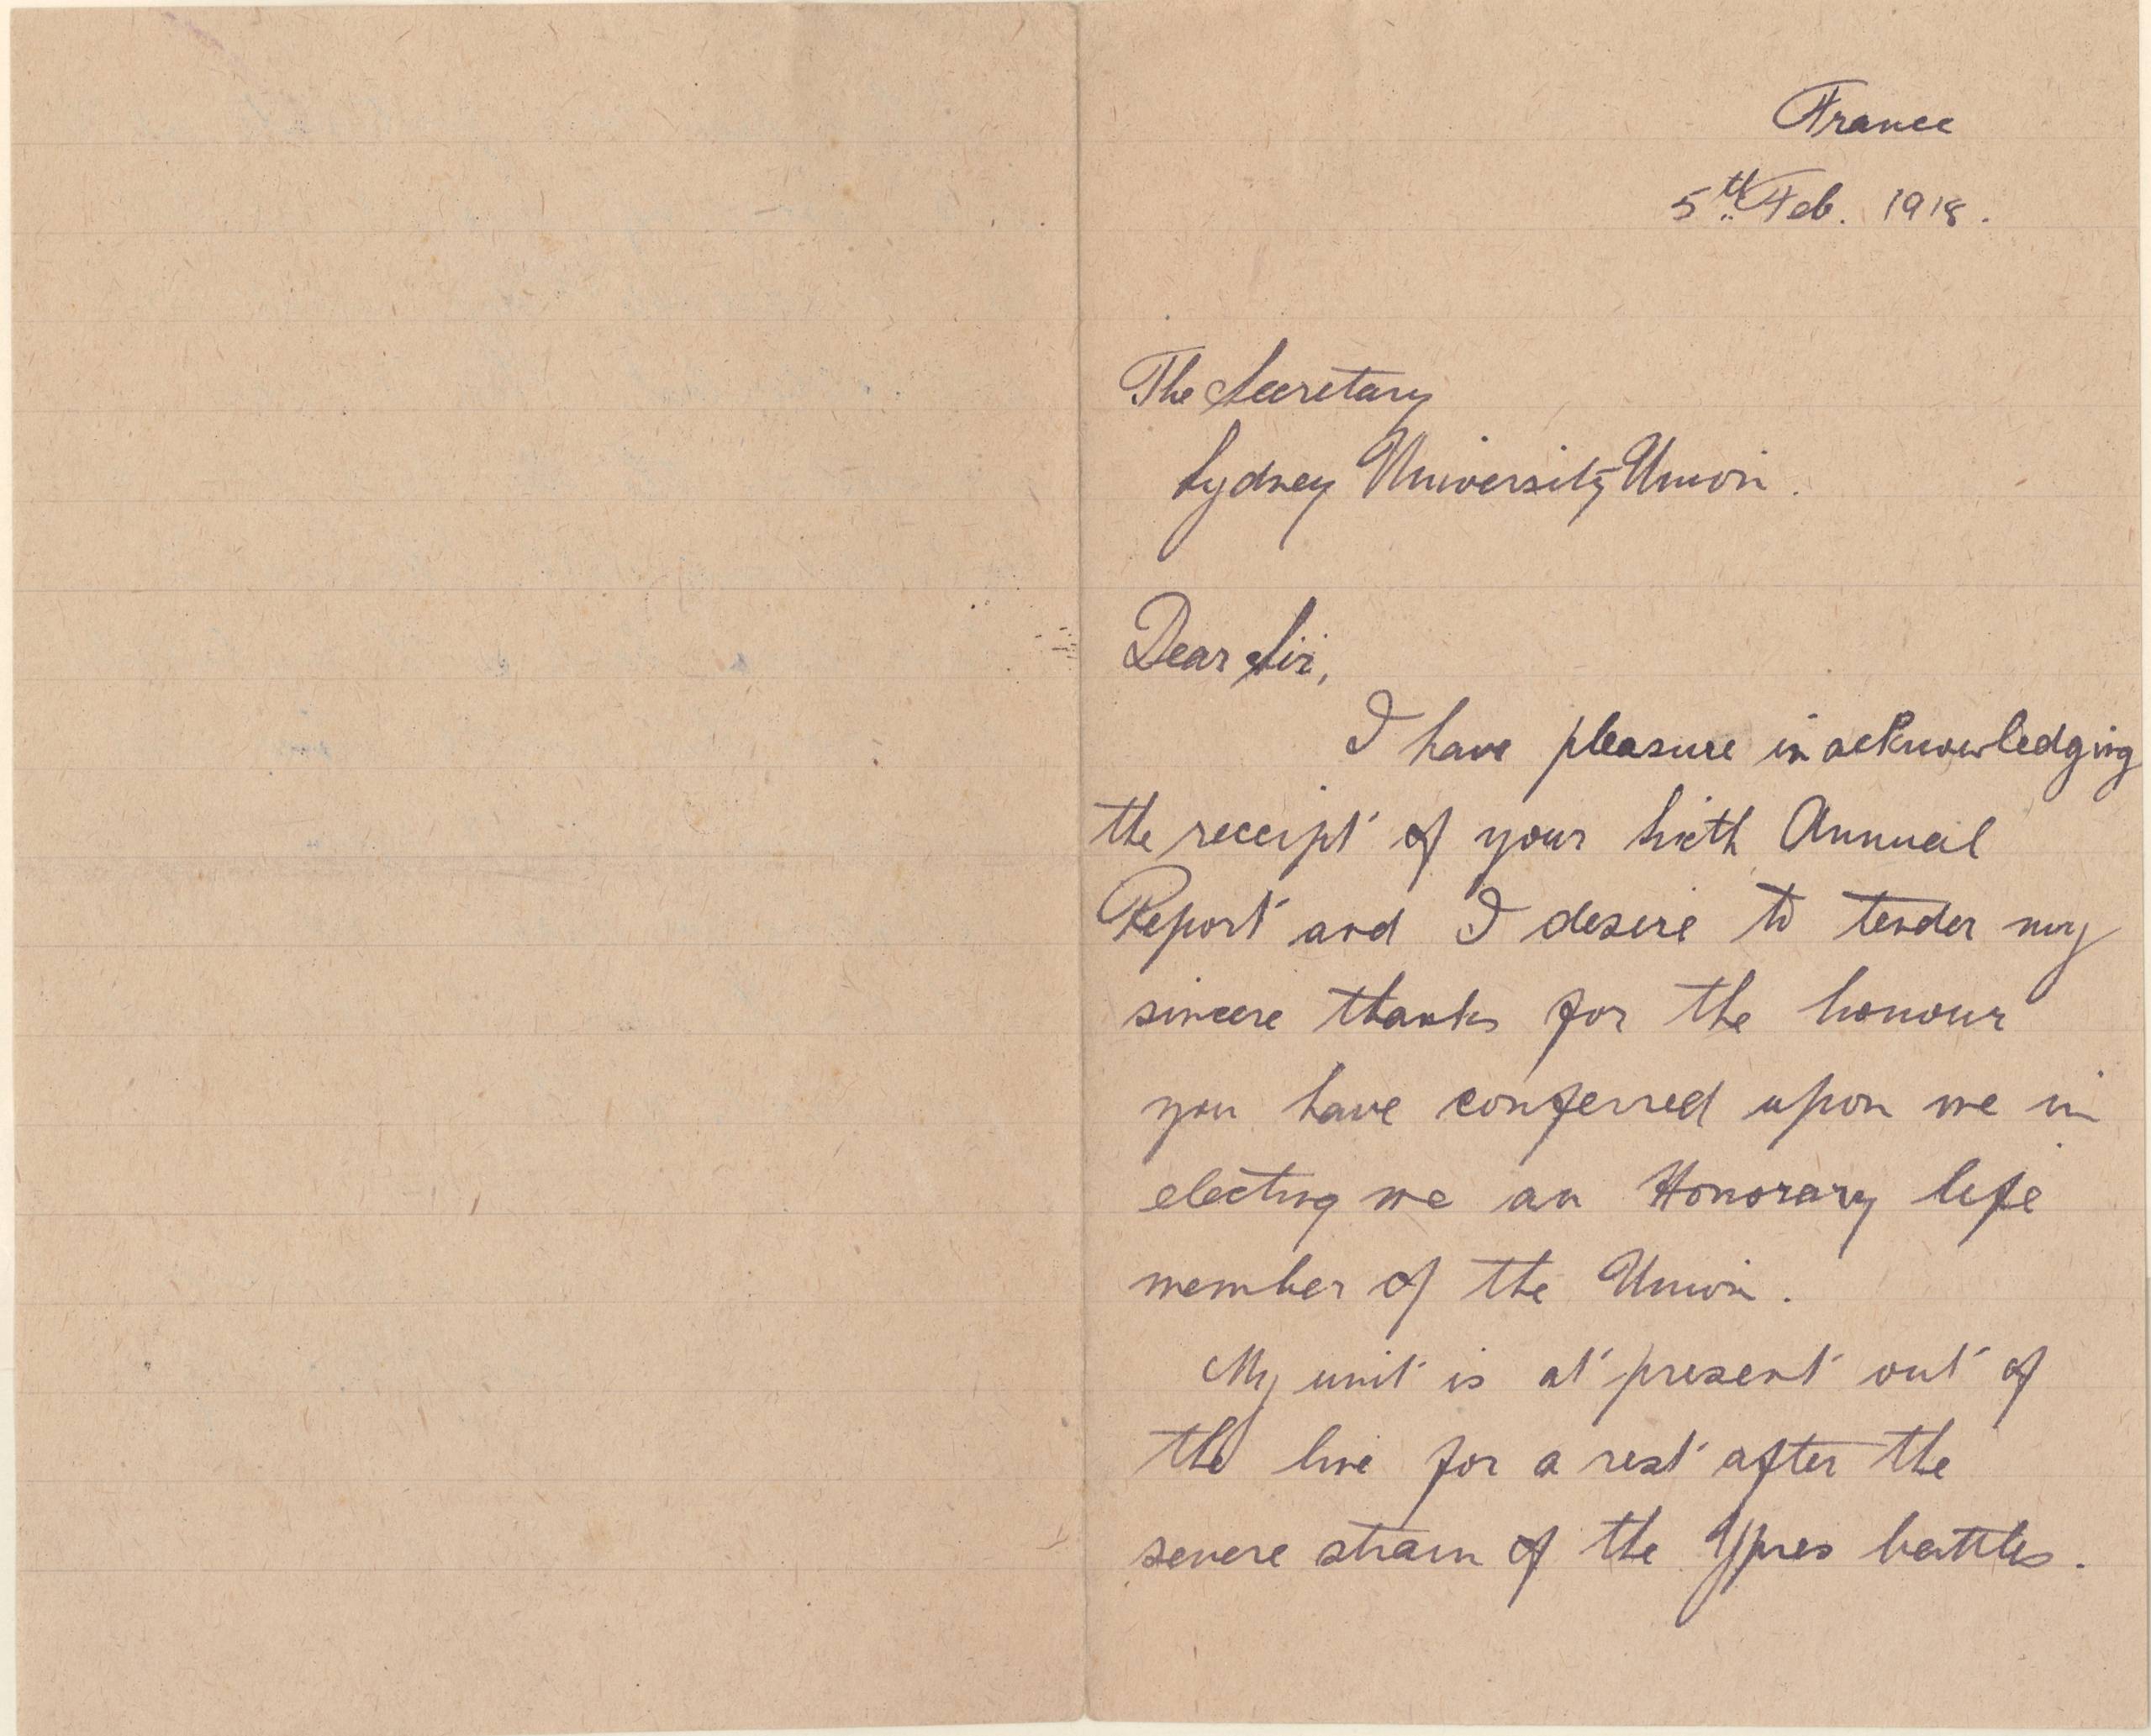 France
5th Feb. 1918.
The Secretary
Sydney University Union.
Dear Sir,
I have pleasure in acknowledging
the receipt of your Sixth Annual
Report and I desire to tender my
sincere thanks for the honour
you have conferred upon me in
electing me an Honorary life
member of the Union.
My unit is at present out of
the line for a rest after the
severe strain of the Ypres battles.